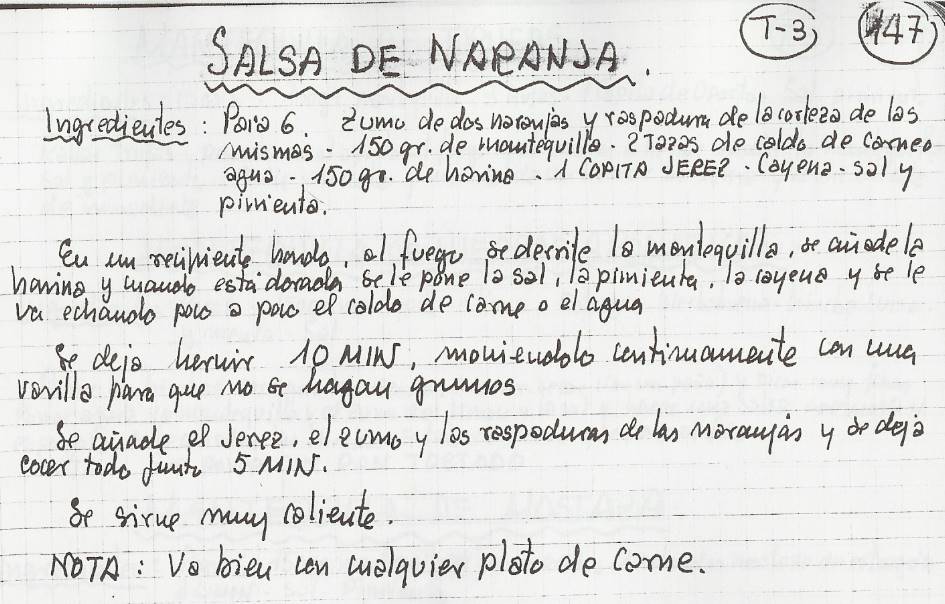 T-3
147
SALSA DE NARANJA.
Ingredientes: Para 6. Zumo de dos naranjas y raspadura de la corteza de las
mismas - 150 gr. de mantequilla - 2 Tazas de caldo de carne o
agua - 150 gr. de harina - 1 COPITA JEREZ - Cayena - sal y
pimienta.
En un recipiente hondo, al fuego se derrite la mantequilla, se añade la
harina y cuando está dorada se le pone la sal, la pimienta, la cayena y se le
va echando poco a poco el caldo de carne o el agua
Se deja hervir 10 MIN, moviendolo continuamente con una
varilla para que no se hagan grumos
Se añade el Jerez, el zumo y las raspaduras de las naranjas y se deja
cocer todo junto 5 MIN.
Se sirve muy caliente.
NOTA: Va bien con cualquier plato de carne.